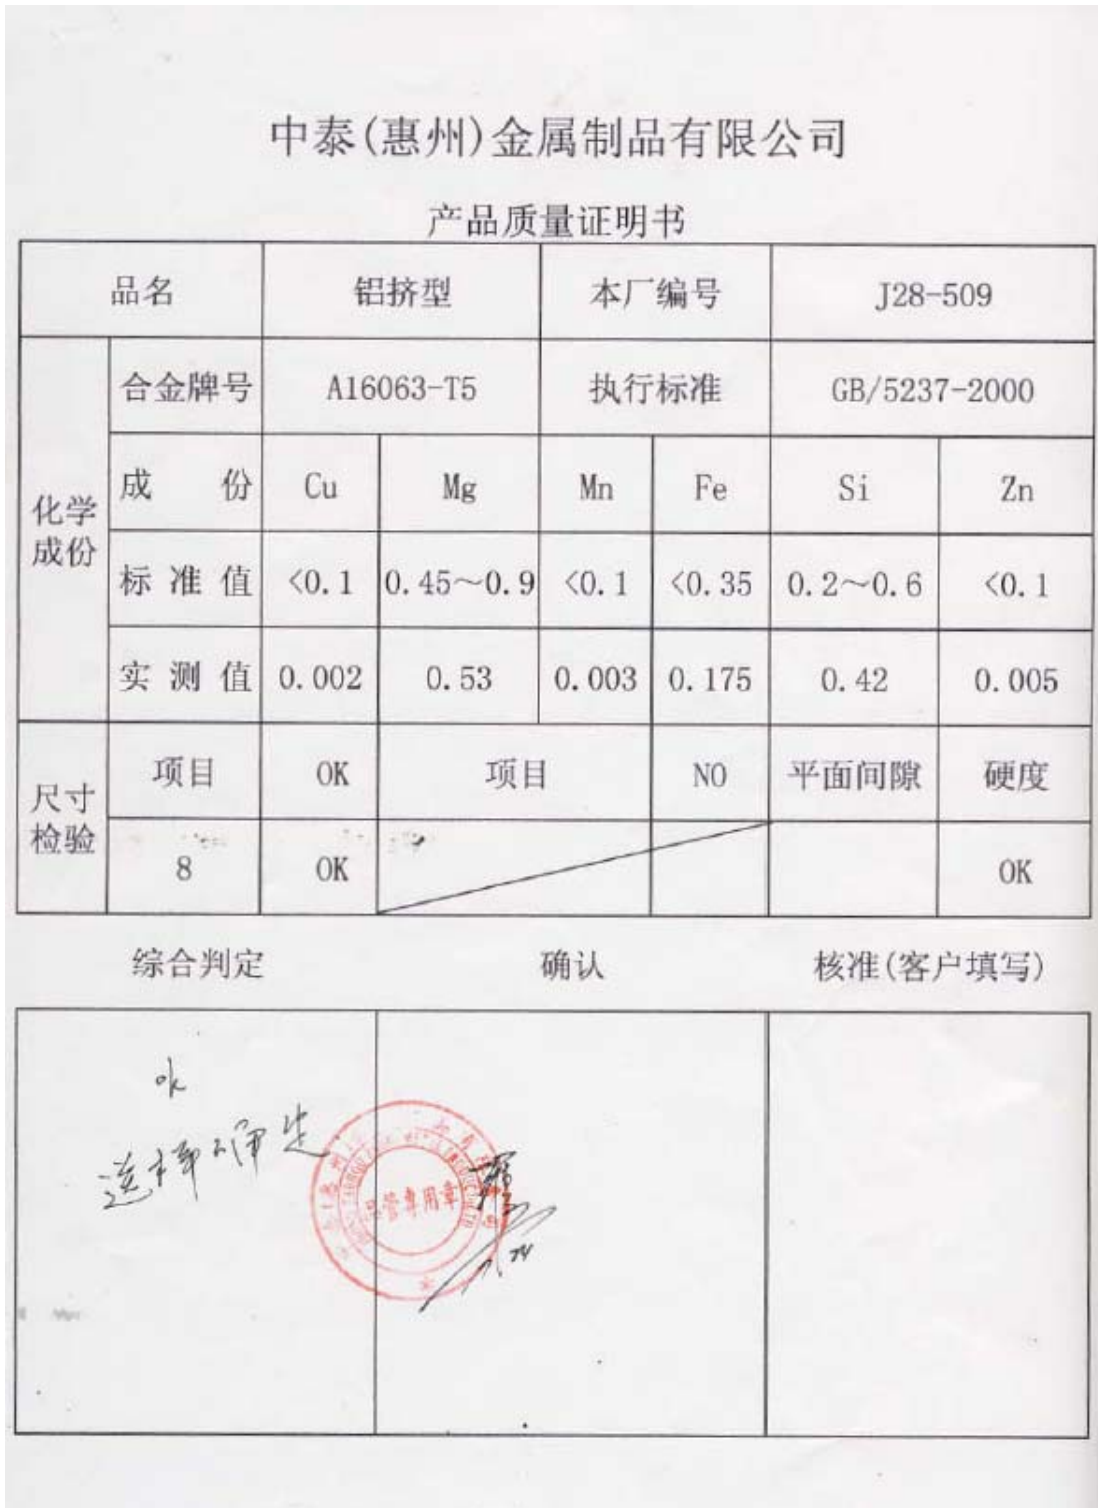 中泰(惠州)金属制品有限公司
产品质量证明书
品名 铝挤型 本厂编号 J28-509
化学成份
合金牌号 A16063-T5 执行标准 GB/5237-2000
成 份 Cu Mg Mn Fe Si Zn
标准值 <0.1 0.45~0.9 <0.1 <0.35 0.2~0.6 <0.1
实测值 0.002 0.53 0.003 0.175 0.42 0.005
尺寸检验
项目 OK 项目 NO 平面间隙 硬度
8 OK OK
综合判定 确认 核准(客户填写)
ok
品管专用章